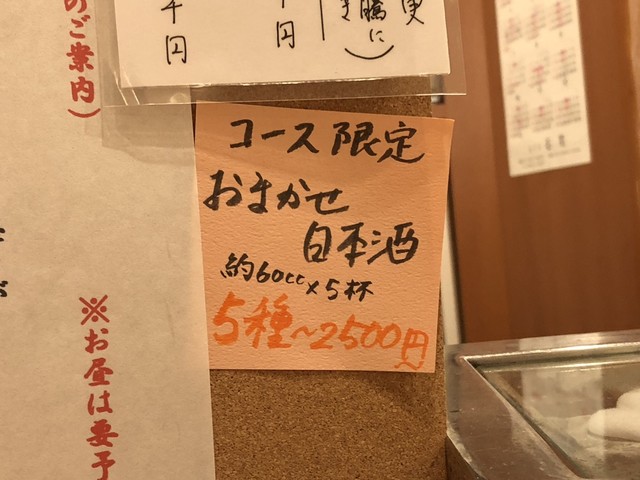 コース限定
おまかせ
日本酒
約60cc×5杯
5種〜2500円
のご案内)
※お昼は要予
騰に
円
円